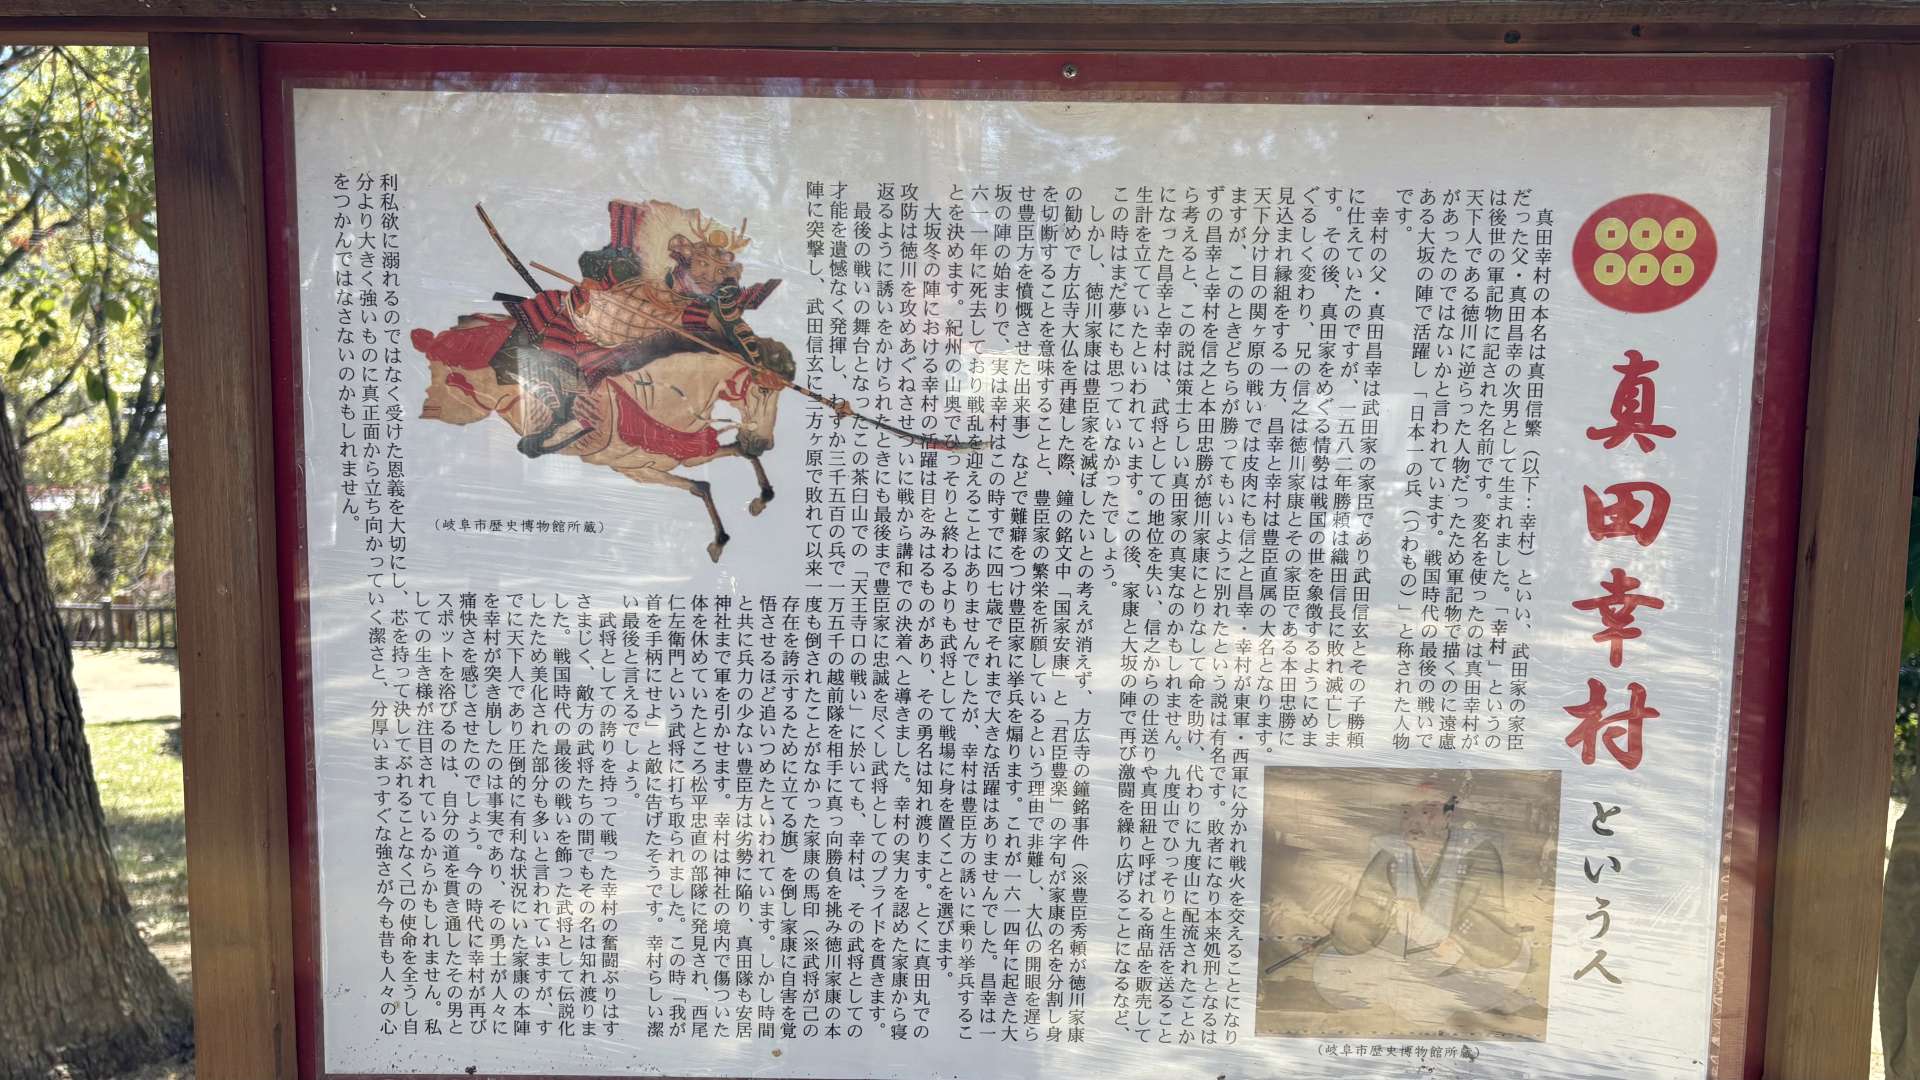 真田幸村という人
真田幸村の本名は真田信繁（以下：幸村）といい、武田家の家臣
だった父・真田昌幸の次男として生まれました。「幸村」というの
は後世の軍記物に記された名前です。変名を使ったのは真田幸村が
天下人である徳川に逆らった人物だったため軍記物で描くのに遠慮
があったのではないかと言われています。戦国時代の最後の戦いで
ある大坂の陣で活躍し「日本一の兵（つわもの）」と称された人物
です。
幸村の父・真田昌幸は武田家の家臣であり武田信玄とその子勝頼
に仕えていたのですが、一五八二年勝頼は織田信長に敗れ滅亡しま
す。その後、真田家をめぐる情勢は戦国の世を象徴するようにめま
ぐるしく変わり、兄の信之は徳川家康とその家臣である本田忠勝に
見込まれ縁組をする一方、昌幸と幸村は豊臣直属の大名となります。
天下分け目の関ヶ原の戦いでは皮肉にも信之と昌幸・幸村が東軍・西軍に分かれ戦火を交えることになり
ますが、このときどちらが勝ってもいいように別れたという説は有名です。敗者になり本来処刑となるは
ずの昌幸と幸村を信之と本田忠勝が徳川家康にとりなして命を助け、代わりに九度山に配流されたことか
ら考えると、この説は策士らしい真田家の真実なのかもしれません。九度山でひっそりと生活を送ること
になった昌幸と幸村は、武将としての地位を失い、信之からの仕送りや真田紐と呼ばれる商品を販売して
生計を立てていたといわれています。この後、家康と大坂の陣で再び激闘を繰り広げることになるなど、
この時はまだ夢にも思っていなかったでしょう。
しかし、徳川家康は豊臣家を滅ぼしたいとの考えが消えず、方広寺の鐘銘事件（※豊臣秀頼が徳川家康
の勧めで方広寺大仏を再建した際、鐘の銘文中「国家安康」と「君臣豊楽」の字句が家康の名を分割し身
を切断することを意味することと、豊臣家の繁栄を祈願しているという理由で非難し、大仏の開眼を遅ら
せ豊臣方を憤慨させた出来事）などで難癖をつけ豊臣家に挙兵を煽ります。これが一六一四年に起きた大
坂の陣の始まりで、実は幸村はこの時すでに四七歳でそれまで大きな活躍はありませんでした。昌幸は一
六一一年に死去しており戦乱を迎えることはありませんでしたが、幸村は豊臣方の誘いに乗り挙兵するこ
とを決めます。紀州の山奥でひっそりと終わるよりも武将として戦場に身を置くことを選びます。
大坂冬の陣における幸村の活躍は目をみはるものがあり、その勇名は知れ渡ります。とくに真田丸での
攻防は徳川を攻めあぐねさせついに戦から講和での決着へと導きました。幸村の実力を認めた家康から寝
返るように誘いをかけられたときにも最後まで豊臣家に忠誠を尽くし武将としてのプライドを貫きます。
最後の戦いの舞台となったこの茶臼山での「天王寺口の戦い」に於いても、幸村は、その武将としての
才能を遺憾なく発揮し、わずか三千五百の兵で一万五千の越前隊を相手に真っ向勝負を挑み徳川家康の本
陣に突撃し、武田信玄に三方ヶ原で敗れて以来一度も倒されたことがなかった家康の馬印（※武将が己の
存在を誇示するために立てる旗）を倒し家康に自害を覚
悟させるほど追いつめたといわれています。しかし時間
と共に兵力の少ない豊臣方は劣勢に陥り、真田隊も安居
神社まで軍を引かせます。幸村は神社の境内で傷ついた
体を休めていたところ松平忠直の部隊に発見され、西尾
仁左衛門という武将に打ち取られました。この時「我が
首を手柄にせよ」と敵に告げたそうです。幸村らしい潔
い最後と言えるでしょう。
武将としての誇りを持って戦った幸村の奮闘ぶりはす
さまじく、敵方の武将たちの間でもその名は知れ渡りま
した。戦国時代の最後の戦いを飾った武将として伝説化
したため美化された部分も多いと言われていますが、す
でに天下人であり圧倒的に有利な状況にいた家康の本陣
を幸村が突き崩したのは事実であり、その勇士が人々に
痛快さを感じさせたのでしょう。今の時代に幸村が再び
スポットを浴びるのは、自分の道を貫き通したその男と
しての生き様が注目されているからかもしれません。私
利私欲に溺れるのではなく受けた恩義を大切にし、芯を持って決してぶれることなく己の使命を全うし自
分より大きく強いものに真正面から立ち向かっていく潔さと、分厚いまっすぐな強さが今も昔も人々の心
をつかんではなさないのかもしれません。
（岐阜市歴史博物館所蔵）
（岐阜市歴史博物館所蔵）